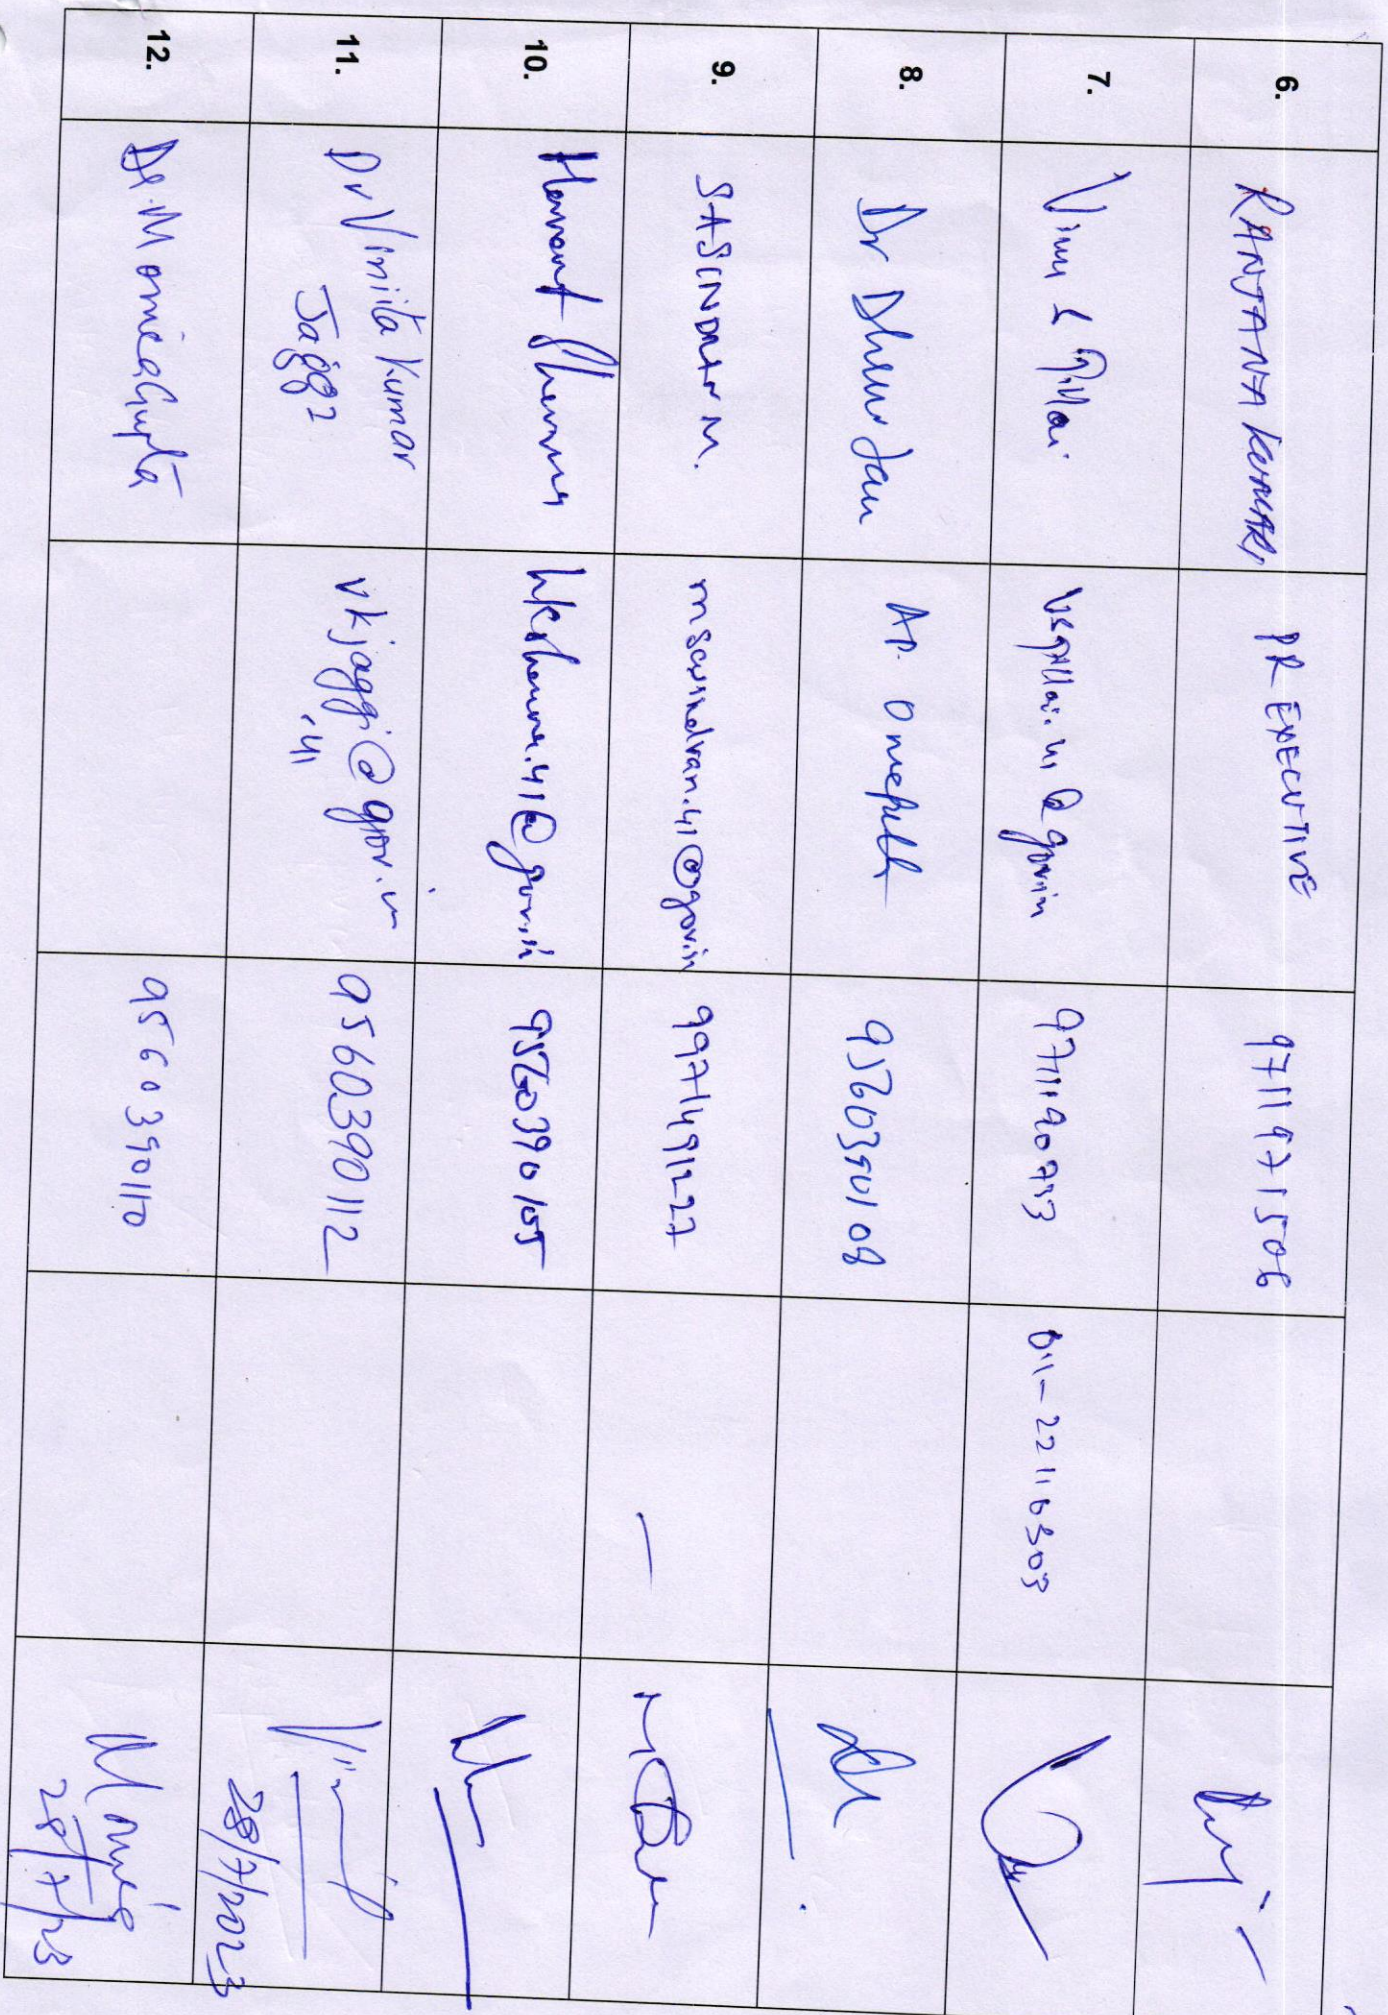 6. RANJANA KUMARI PR EXECUTIVE 9711971506
7. Vinu 9711190733 011-22116303
8. Dr Dhruv Jain AD. 9560390108
9. SASINDRAN M. msasindran.41@gov.in 9971491227 —
10. Hemant Sharma hksharma.41@gov.in 9560390105
11. Dr Vinita Kumar vkjaggi@gov.in 9560390112
Jaggi .41
28/7/2023
12. Dr. Monica Gupta 9560390110 Monica
28/7/23